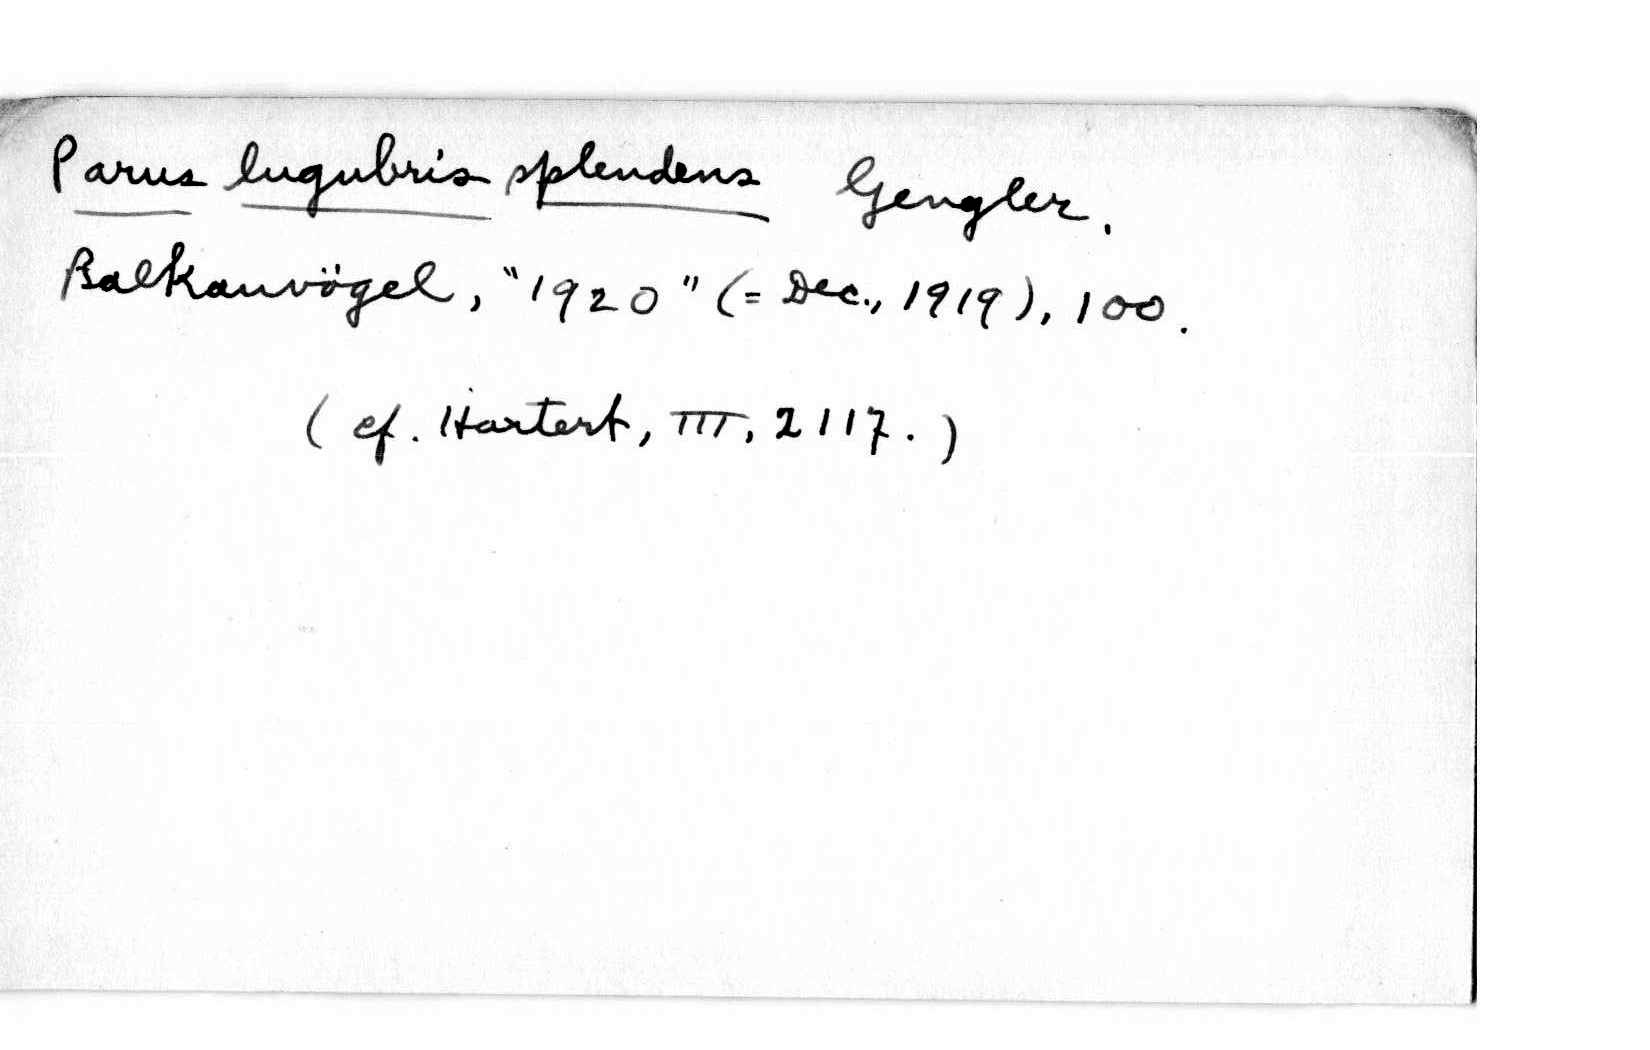 Parus lugubris splendens Gengler.
Balkanvögel, "1920" (= Dec., 1919), 100.
(cf. Hartert, III, 2117.)